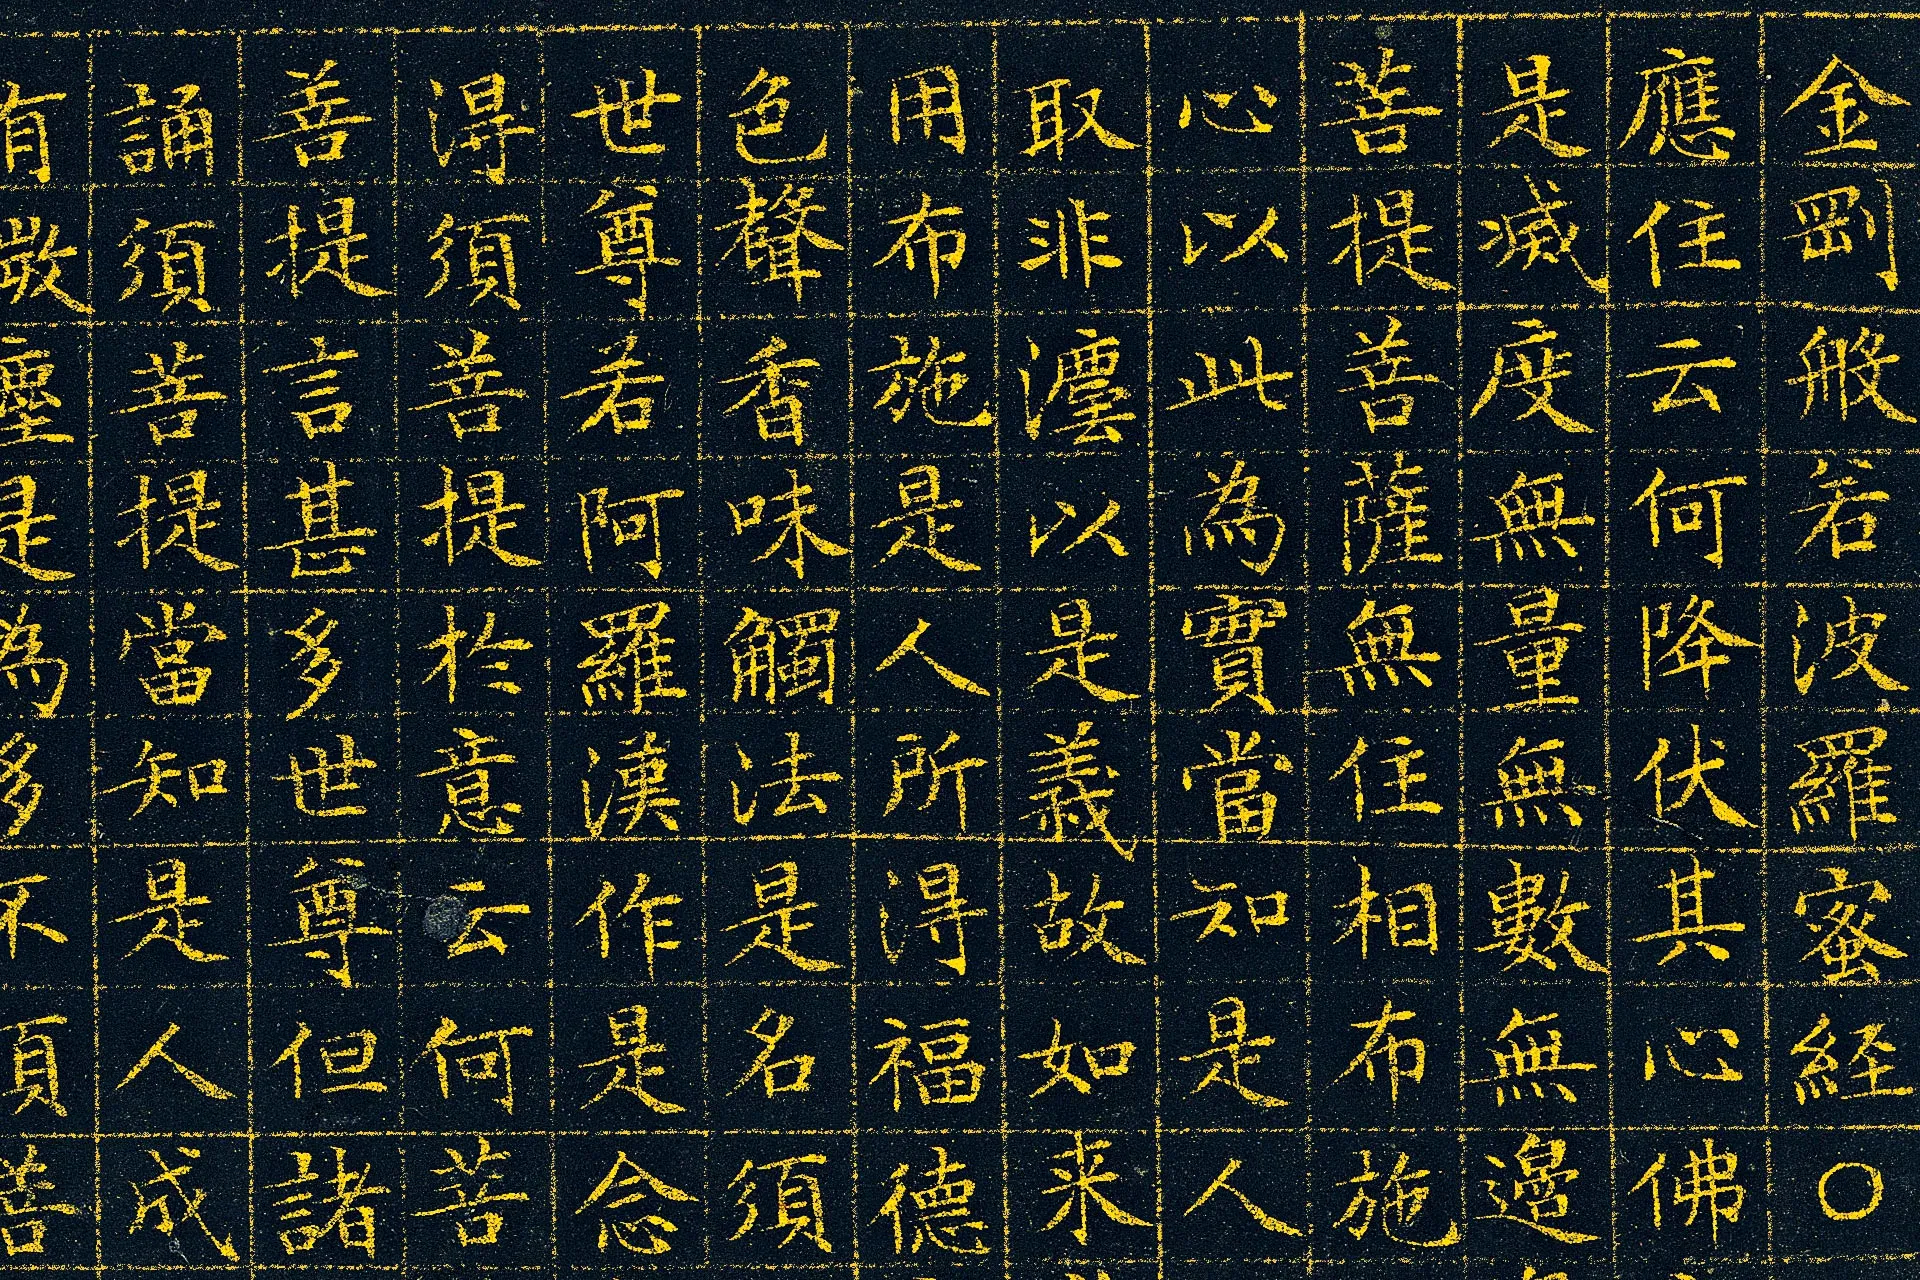 金剛般若波羅蜜経〇
應住云何降伏其心佛
是滅度無量無數無邊
菩提菩薩無住相布施
心以此為實當知是人
取非法以是義故如来
用布施是人所得福德
色聲香味觸法是名須
世尊若阿羅漢作是念
得須菩提於意云何菩
善提言甚多世尊但諸
誦須菩提當知是人成
有微塵是為多不須菩